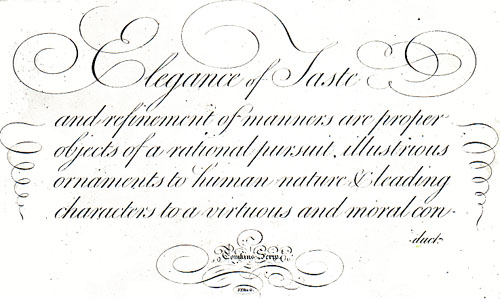 Elegance of Taste
and refinement of manners are proper
objects of a rational pursuit, illustrious
ornaments to human nature & leading
characters to a virtuous and moral con
duct.
Tomkins Scrip.